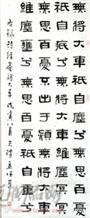 無將大車祇自塵兮無思百憂
祇自疧兮無將大車維塵冥冥
無思百憂不出于熲無將大車
維塵雝兮無思百憂祇自重兮
詩經無將大車 八月天津